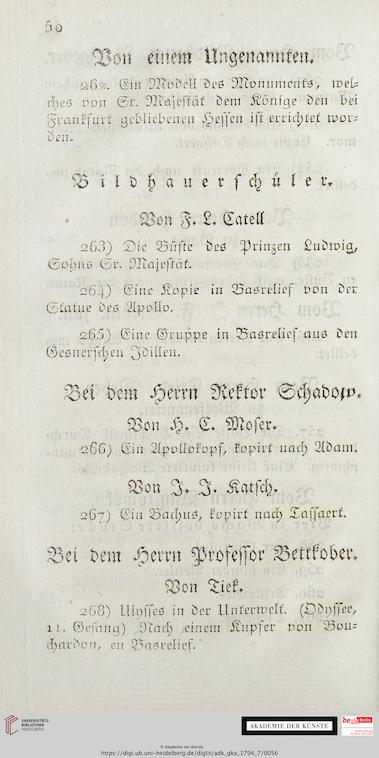 50
Von einem Ungenannten.
262. Ein Modell des Monuments, wel-
ches von Sr. Majestät dem Könige den bei
Frankfurt gebliebenen Hessen ist errichtet wor-
den.
Bildhauerschüler.
Von F. L. Catell
263) Die Büste des Prinzen Ludwig,
Sohns Sr. Majestät.
264) Eine Kopie in Basrelief von der
Statue des Apollo.
265) Eine Gruppe in Basrelief aus den
Gesnerschen Idillen.
Bei dem Herrn Rektor Schadow.
Von H. C. Moser.
266) Ein Apollokopf, kopirt nach Adam.
Von J. J. Katsch.
267) Ein Bachus, kopirt nach Tassaert.
Bei dem Herrn Professor Bettkober.
Von Tiek.
268) Ulysses in der Unterwelt. (Odyssee,
11. Gesang) Nach einem Kupfer von Bou-
chardon, en Basrelief.
UNIVERSITÄTS-
BIBLIOTHEK
HEIDELBERG
AKADEMIE DER KÜNSTE
be Berlin
© Akademie der Künste
https://digi.ub.uni-heidelberg.de/diglit/adk_gka_1794_7/0056